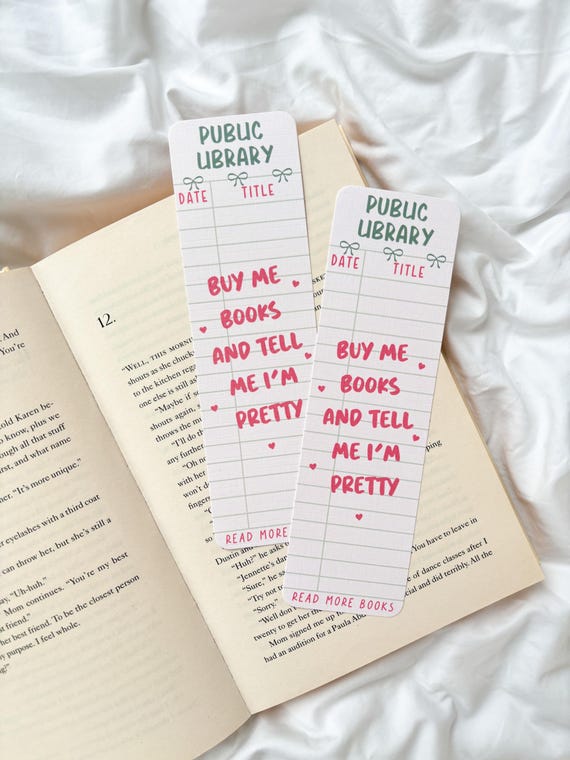 PUBLIC
LIBRARY
DATE TITLE
BUY ME
BOOKS
AND TELL
ME I'M
PRETTY
READ MORE
PUBLIC
LIBRARY
DATE TITLE
BUY ME
BOOKS
AND TELL
ME I'M
PRETTY
READ MORE BOOKS
And
You're
old Karen be-
o know, plus we
ough all that stuff
irst, and what name
her. "It's more unique."
er eyelashes with a third coat
can throw her, but she's still a
ay, "Uh-huh."
Mom continues. "You're my best
st friend."
her best friend. To be the closest person
y purpose. I feel whole.
12.
"WELL, THIS MORN
shouts as she chuck
to the kitchen rega
one else is still as
"Maybe if
shouts again,
throws the m
"I'll do th
any further
"Oh no
with her
won't d
finger
Dustin and
"Huh?" he asks
"Jennette's da
"Sure," he sa
Try not
"Sorry."
"Well don't
You have to leave in
twenty to get her
of dance classes after I
Mom signed me up
cial and did terribly. All the
had an audition for a Paula Ab